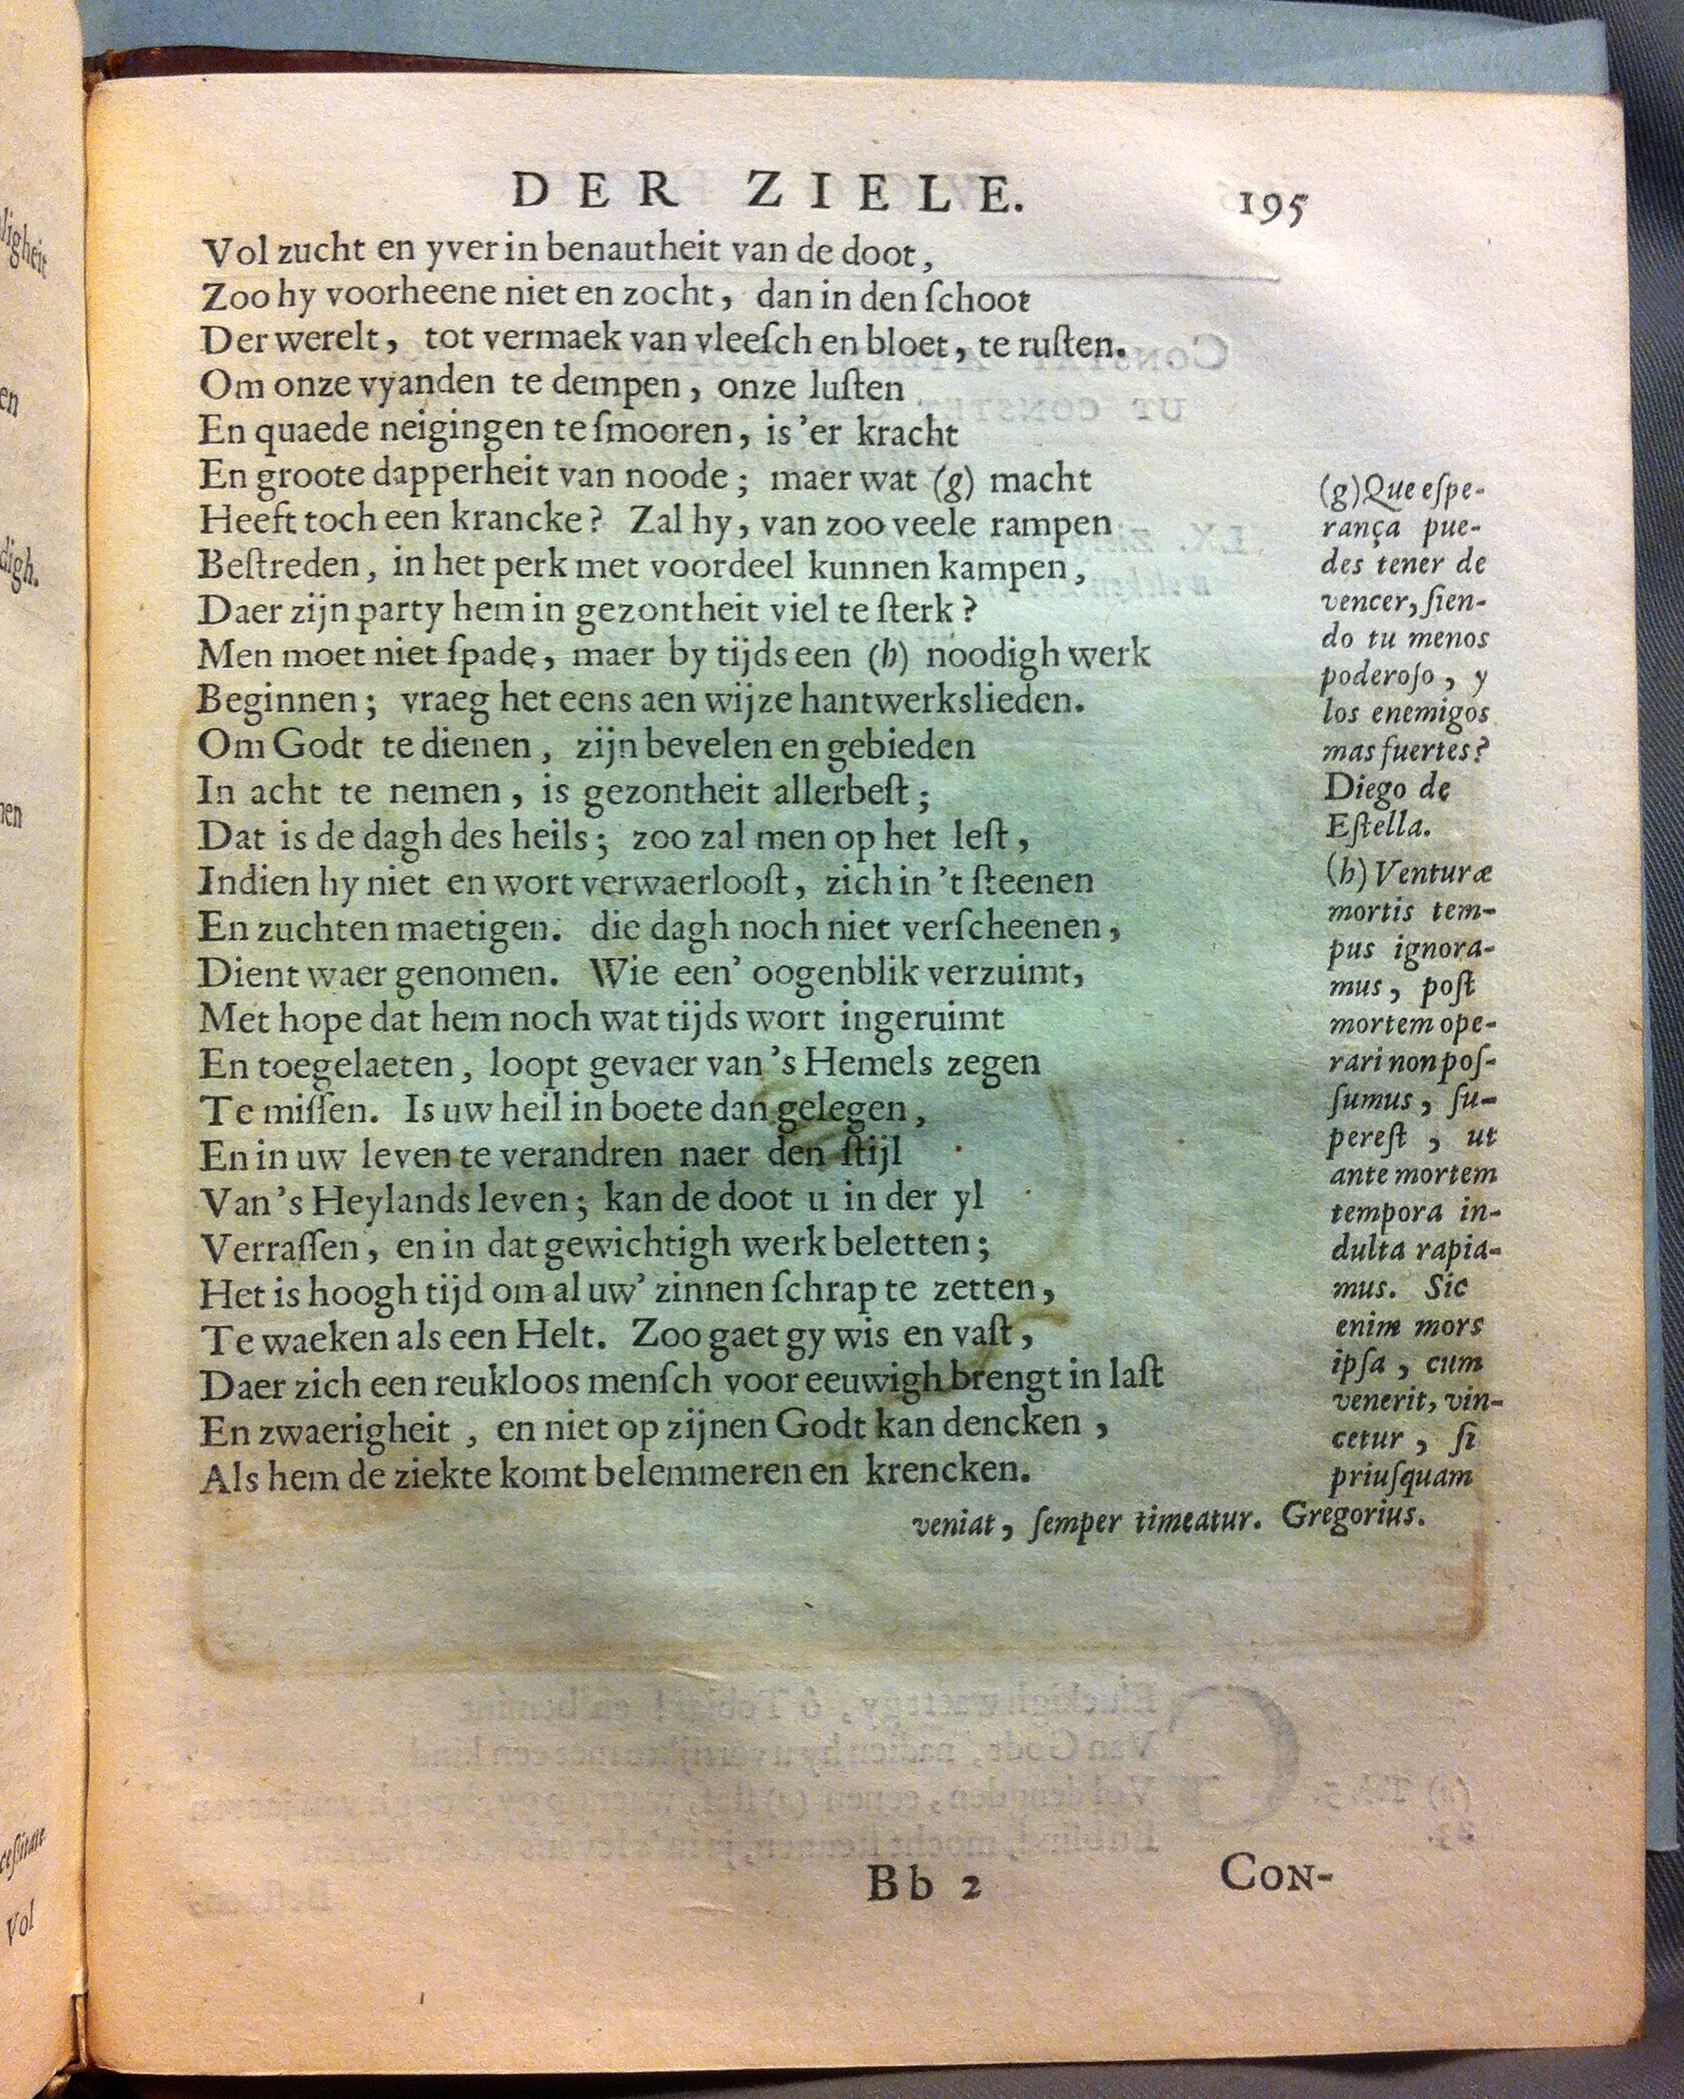 DER ZIELE. 195
Vol zucht en yver in benautheit van de doot,
Zoo hy voorheene niet en zocht, dan in den ſchoot
Der werelt, tot vermaek van vleeſch en bloet, te ruſten.
Om onze vyanden te dempen, onze luſten
En quaede neigingen te ſmooren, is 'er kracht
En groote dapperheit van noode; maer wat (g) macht
Heeft toch een krancke? Zal hy, van zoo veele rampen
Beſtreden, in het perk met voordeel kunnen kampen,
Daer zijn party hem in gezontheit viel te ſterk?
Men moet niet ſpade, maer by tijds een (h) noodigh werk
Beginnen; vraeg het eens aen wijze hantwerkslieden.
Om Godt te dienen, zijn bevelen en gebieden
In acht te nemen, is gezontheit allerbeſt;
Dat is de dagh des heils; zoo zal men op het leſt,
Indien hy niet en wort verwaerlooſt, zich in 't ſteenen
En zuchten maetigen. die dagh noch niet verſcheenen,
Dient waer genomen. Wie een' oogenblik verzuimt,
Met hope dat hem noch wat tijds wort ingeruimt
En toegelaeten, loopt gevaer van 's Hemels zegen
Te miſſen. Is uw heil in boete dan gelegen,
En in uw leven te verandren naer den ſtijl
Van 's Heylands leven; kan de doot u in der yl
Verraſſen, en in dat gewichtigh werk beletten;
Het is hoogh tijd om al uw' zinnen ſchrap te zetten,
Te waeken als een Helt. Zoo gaet gy wis en vaſt,
Daer zich een reukloos menſch voor eeuwigh brengt in laſt
En zwaerigheit, en niet op zijnen Godt kan dencken,
Als hem de ziekte komt belemmeren en krencken.
(g) Que eſpe-
rança pue-
des tener de
vencer, ſien-
do tu menos
poderoſo, y
los enemigos
mas fuertes?
Diego de
Eſtella.
(h) Venturæ
mortis tem-
pus ignora-
mus, poſt
mortem ope-
rari non poſ-
ſumus, ſu-
pereſt, ut
ante mortem
tempora in-
dulta rapia-
mus. Sic
enim mors
ipſa, cum
venerit, vin-
cetur, ſi
priuſquam
veniat, ſemper timeatur. Gregorius.
Bb 2 CON-